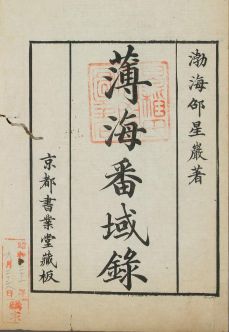 渤海邵星巖著
薄海番域錄
京都書業堂藏板